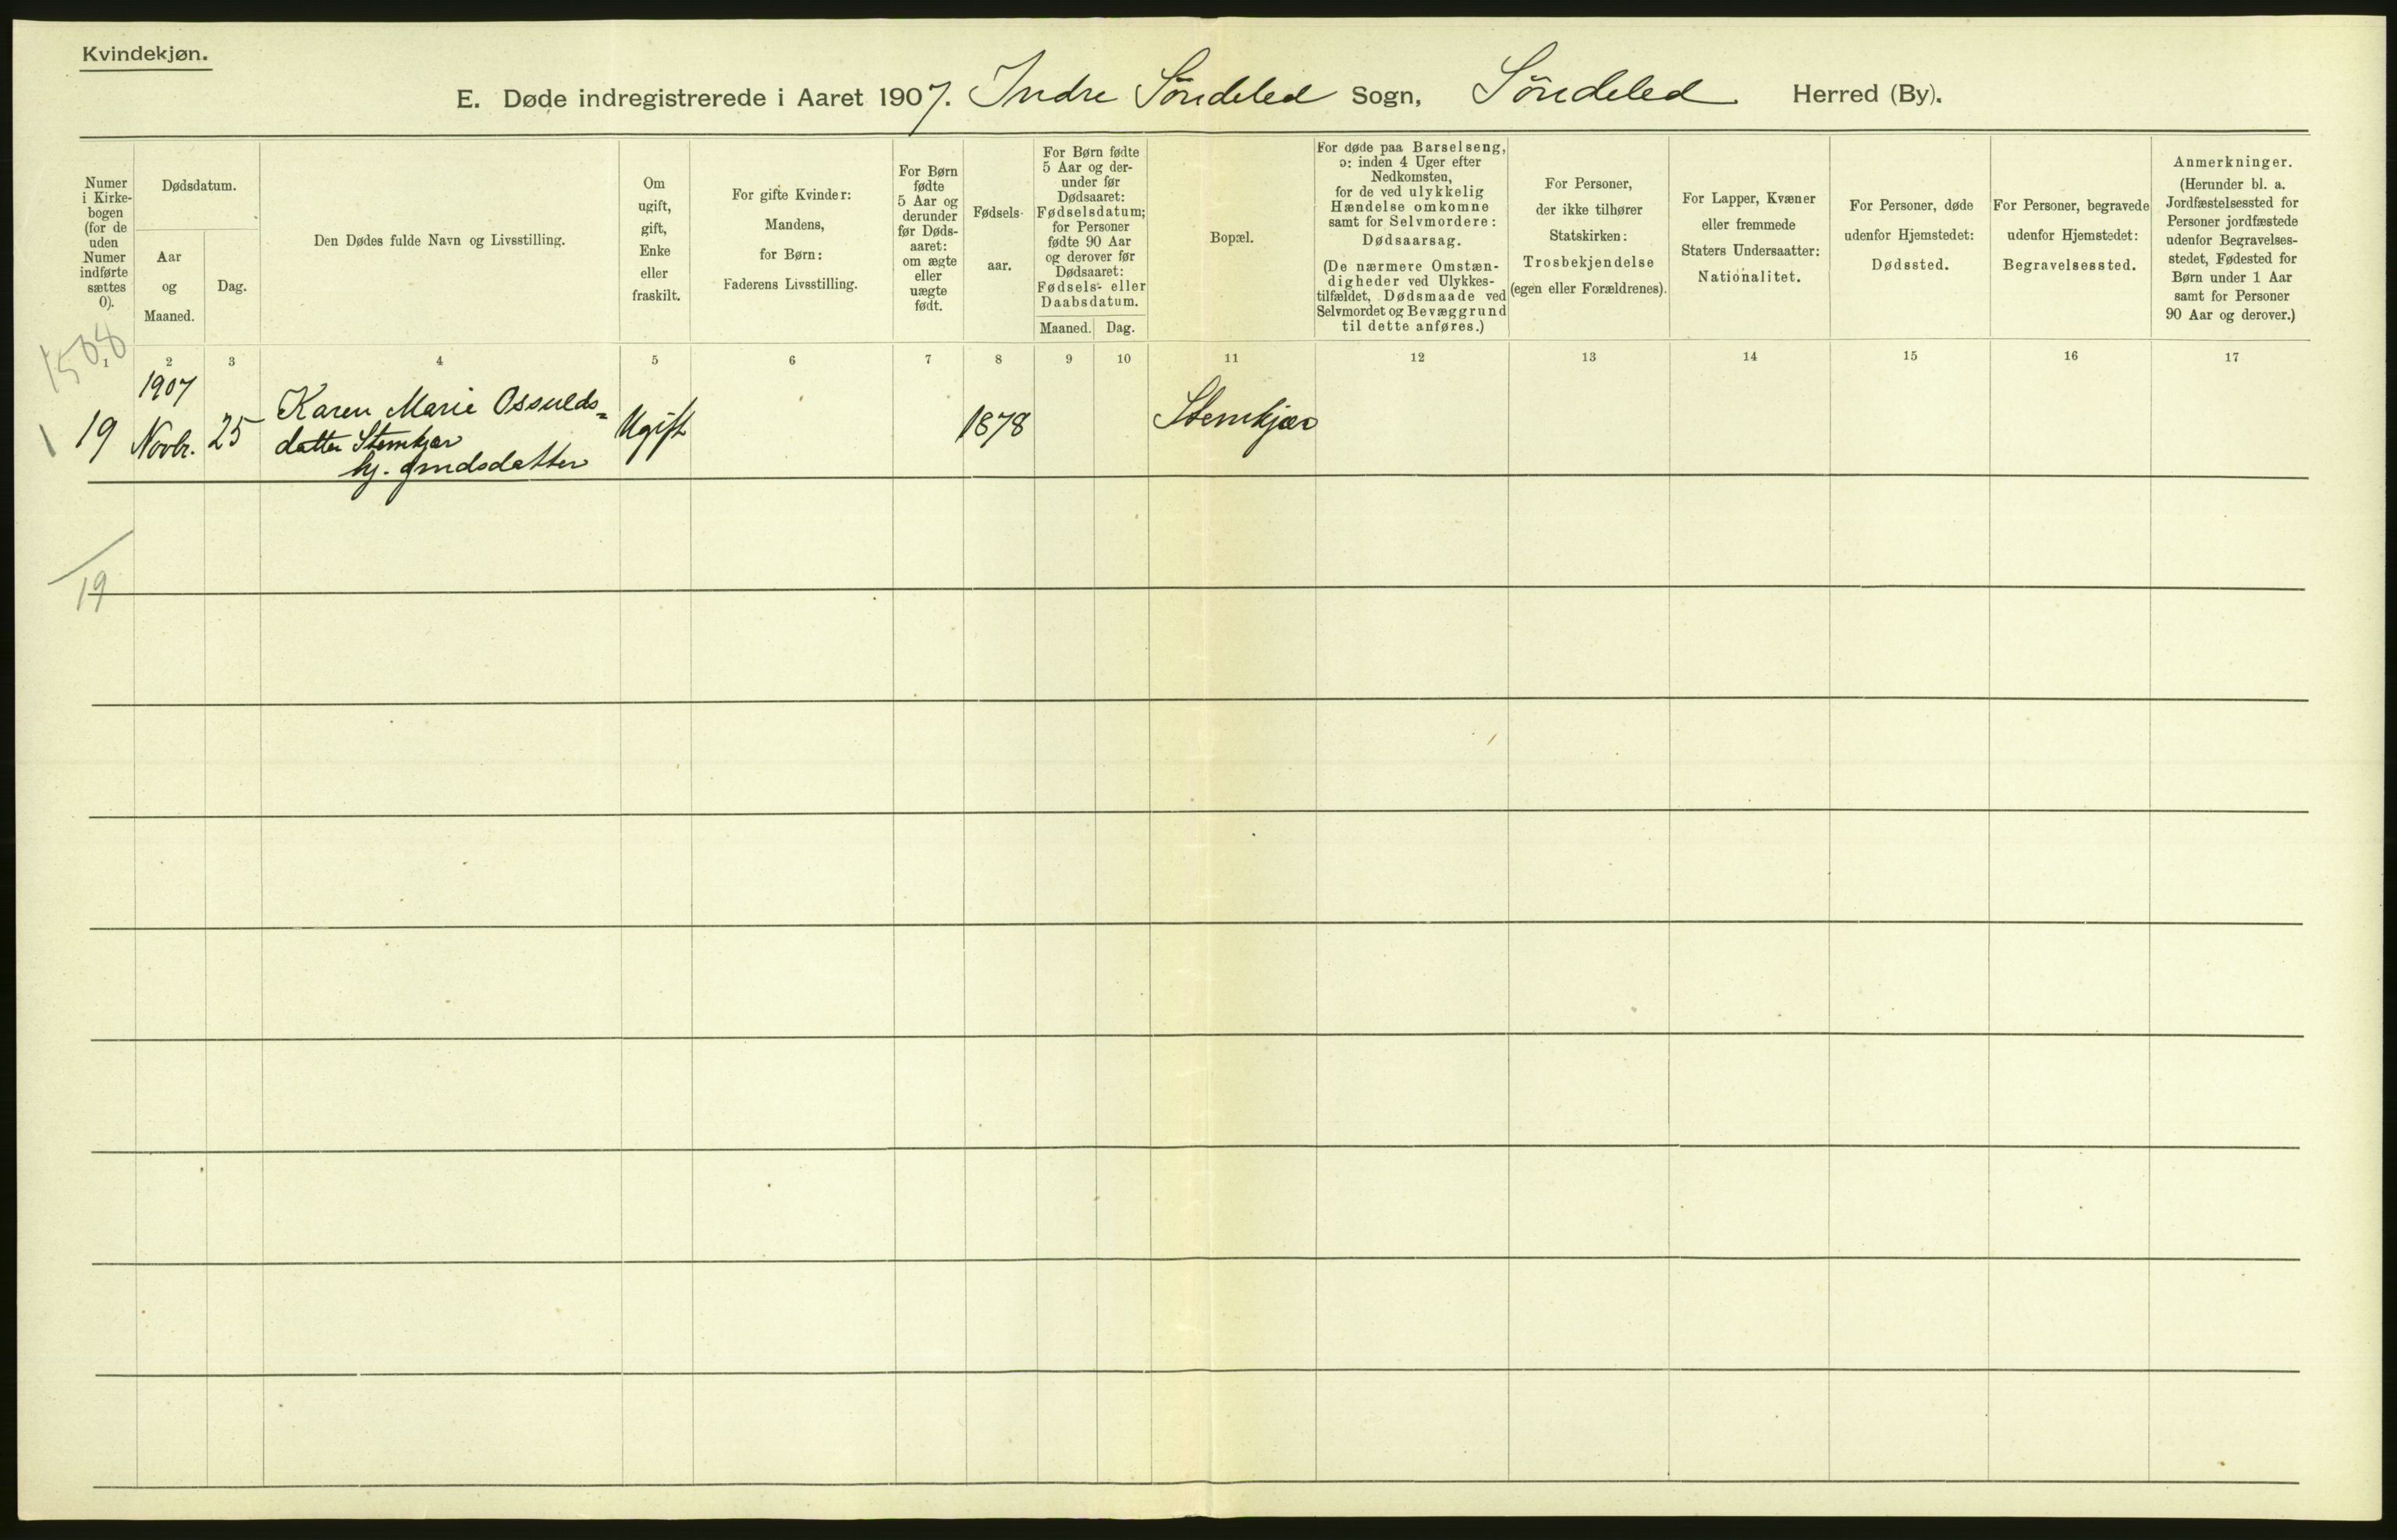 Kvindekjøn.
E. Døde indregistrerede i Aaret 1907. Indre Söndeled Sogn, Söndeled Herred (By).
Numer
i Kirke-
bogen
(for de
uden
Numer
indførte
sættes
0).
Dødsdatum.
Aar
og
Maaned.
Dag.
Den Dødes fulde Navn og Livsstilling.
Om
ugift,
gift,
Enke
eller
fraskilt.
For gifte Kvinder:
Mandens,
for Børn:
Faderens Livsstilling.
For Børn
fødte
5 Aar og
derunder
før Døds-
aaret:
om ægte
eller
uægte
født.
Fødsels-
aar.
For Børn fødte
5 Aar og der-
under før
Dødsaaret:
Fødselsdatum;
for Personer
fødte 90 Aar
og derover før
Dødsaaret:
Fødsels- eller
Daabsdatum.
Maaned. Dag.
Bopæl.
For døde paa Barselseng,
ɔ: inden 4 Uger efter
Nedkomsten,
for de ved ulykkelig
Hændelse omkomne
samt for Selvmordere:
Dødsaarsag.
(De nærmere Omstæn-
digheder ved Ulykkes-
tilfældet, Dødsmaade ved
Selvmordet og Bevæggrund
til dette anføres.)
For Personer,
der ikke tilhører
Statskirken:
Trosbekjendelse
(egen eller Forældrenes).
For Lapper, Kvæner
eller fremmede
Staters Undersaatter:
Nationalitet.
For Personer, døde
udenfor Hjemstedet:
Dødssted.
For Personer, begravede
udenfor Hjemstedet:
Begravelsessted.
Anmerkninger.
(Herunder bl. a.
Jordfæstelsessted for
Personer jordfæstede
udenfor Begravelses-
stedet, Fødested for
Børn under 1 Aar
samt for Personer
90 Aar og derover.)
1508
1 2 3 4 5 6 7 8 9 10 11 12 13 14 15 16 17
1907
Karen Marie Ossulds=
1 19 Novbr. 25 datter Stemkjær Ugift 1878 Stemkjær
19